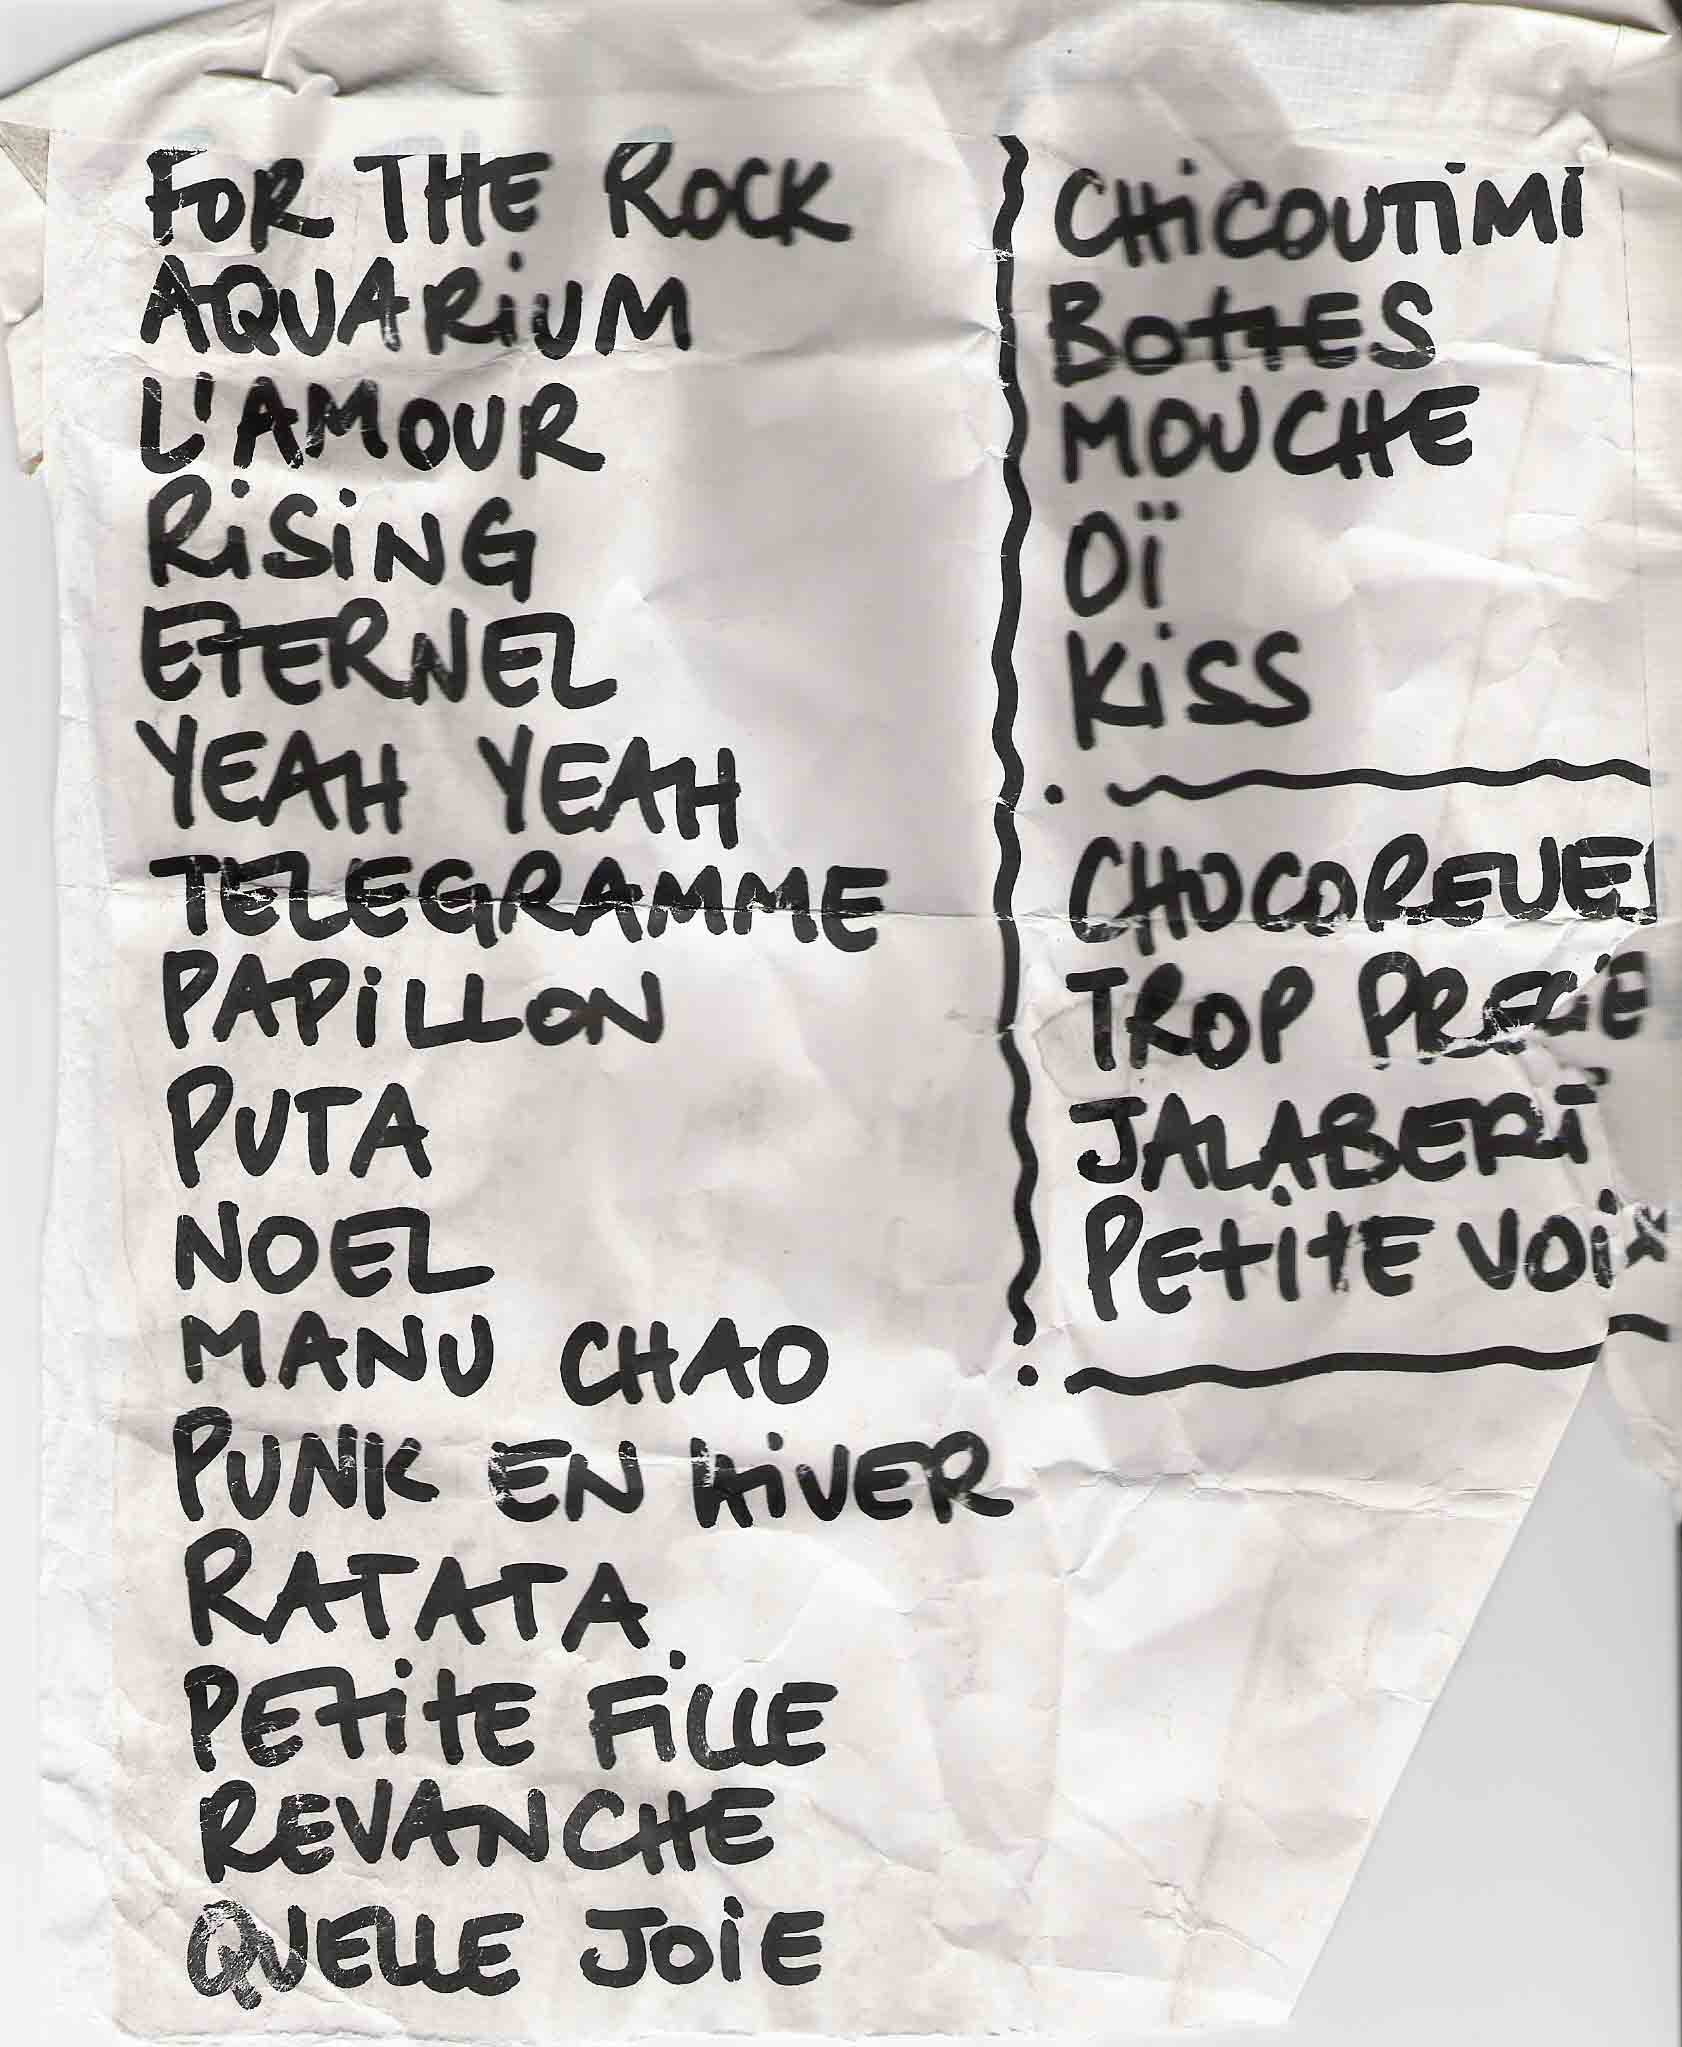 FOR THE ROCK
AQUARiUM
L'AMOUR
RiSiNG
ETERNEL
YEAH YEAH
TELEGRAMME
PAPiLLON
PUTA
NOEL
MANU CHAO
PUNK EN HiVER
RATATA
PETiTE FiLLE
REVANCHE
QUELLE JOiE
CHiCOUTiMi
BOTTES
MOUCHE
OÏ
KiSS
CHOCOREVES
TROP PRECiE
JALABERT
PETiTE VOiX